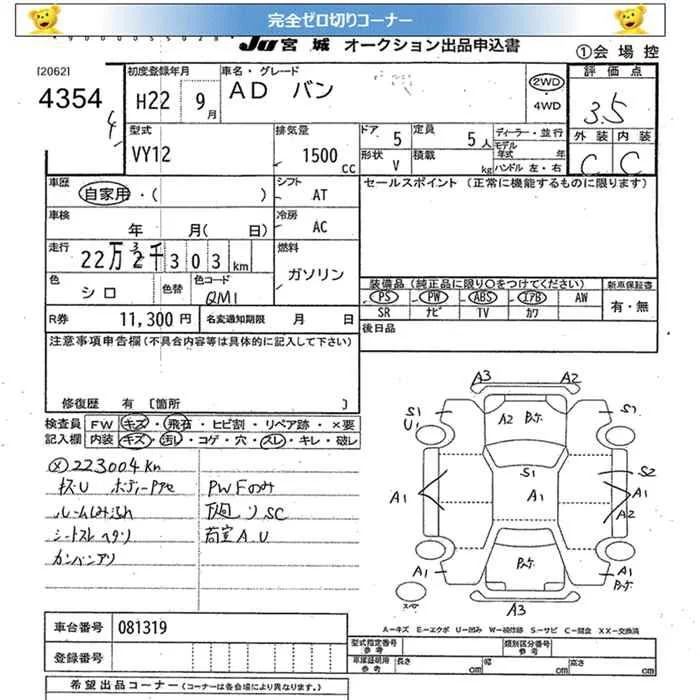 完全ゼロ切りコーナー
JU 宮城 オークション出品申込書
①会場控
[2062]
4354
4
初度登録年月
H22 9月
車名・グレード
AD バン
2WD
・
4WD
評価点
3.5
外装 内装
C C
型式
VY12
排気量
1500 CC
ドア 5
定員 5人
形状 V
積載 kg
ディーラー・並行
モデル年式 年
ハンドル 左・右
車歴
自家用・( )
シフト
AT
セールスポイント (正常に機能するものに限ります)
車検
年 月( 日)
冷房
AC
走行
22万2千303km
3
燃料
ガソリン
色
シロ
色替
色コード
QM1
装備品 (純正品に限り○をつけてください)
新車保証書
PS PW ABS エアB AW
有・無
SR ナビ TV カワ
R券 11,300円
名変通知期限 月 日
後日品
注意事項申告欄 (不具合内容等は具体的に記入して下さい)
修復歴 有 [箇所 ]
検査員
記入欄
FW キズ・飛石・ヒビ割・リペア跡・×要
内装 キズ・汚レ・コゲ・穴・スレ・キレ・破レ
223004km
キズU ボディーPアセ
PWFのみ
ルームしみ汚れ
下廻りSC
シートスレヘタリ
荷室A.U
カンバンアリ
A3 A2
S1
U1
A2
S1
A1
A1
S2
A1
A2
A1
A1
A3
A-キズ E-エクボ U-凹み W-補修跡 S-サビ C-腐食 XX-交換済
車台番号 081319
型式指定番号
参考
類別区分番号
参考
登録番号
車庫証明用
参考
長さ cm 幅 cm 高さ cm
希望出品コーナー (コーナーは各会場により異なります。)